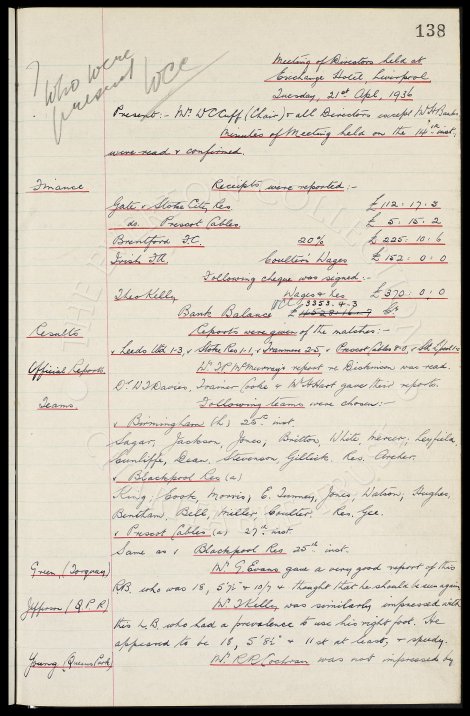 138
? Who were
present WCC
Meeting of Directors held at
Exchange Hotel, Liverpool
Tuesday, 21st Apl, 1936
Present:- Mr. W C Cuff (Chair) & all Directors except Mr
Minutes of Meeting held on the 14th inst.
were read & confirmed.
Finance Receipts were reported:-
Gate v Stoke City Res £112:17:3
do. Prescot Cables £5:15:2
Brentford F.C. 20% £225:10:6
Irish F.A. Coulter's Wages £152:0:0
Following cheque was signed:-
Theo Kelly Wages & Res £370:0:0
WCC 3353.4.3
Bank Balance £
Results Reports were given of the matches:-
v Leeds Utd 1-3, v Stoke Res 1-1, v Tranmere 2-5, v Prescot Cables 8-0, v
Official Reports Mr. McMurray's report re Dickinson was read.
Dr. W F Davies, Trainer Cooke & W. A. Hart gave their reports.
Teams Following teams were chosen:-
v Birmingham (h) 25th inst.
Sagar, Jackson, Jones, Britton, White, Mercer, Leyfield,
Cunliffe, Dean, Stevenson, Gillick, Res. Archer.
v Blackpool Res (a)
King, Cook, Morris, C. Tunney, Jones, Watson, Hughes,
Bentham, Bell, Miller, Coulter. Res. Gee.
v Prescot Cables (a) 27th inst.
Same as v Blackpool Res 25th inst.
Green, (Torquay) Mr. G. Evans gave a very good report of this
R.B. who was 18, 5'9½" & 10/7 & thought that he should be seen again
Jefferson (Q P R) Mr. T Kelly was similarly impressed with
this L.B. who had a prevalence to use his right foot. He
appeared to be 18, 5'8½" & 11 st at least, & speedy.
Young (Queens Park) Mr. R.R. Cochran was not impressed by